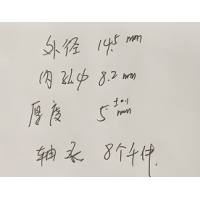 外径 14.5 mm
内孔中 8.2 mm
厚度 5 ±0.1 mm
轴承 8个千件.